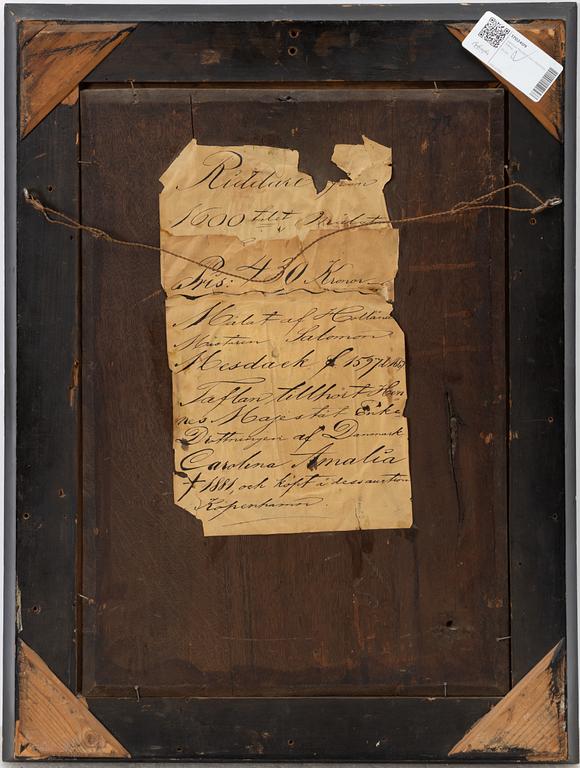 Riddare från
1600 talet
Pris: 430 Kronor
Målat af Holländ
Mästaren Salomon
Mesdack f. 1597
Taflan tillhört Hen
nes Majestät Enke
Drottningen af Danmark
Carolina Amalia
† 1881, och köpt i dess auction
Köpenhamn.